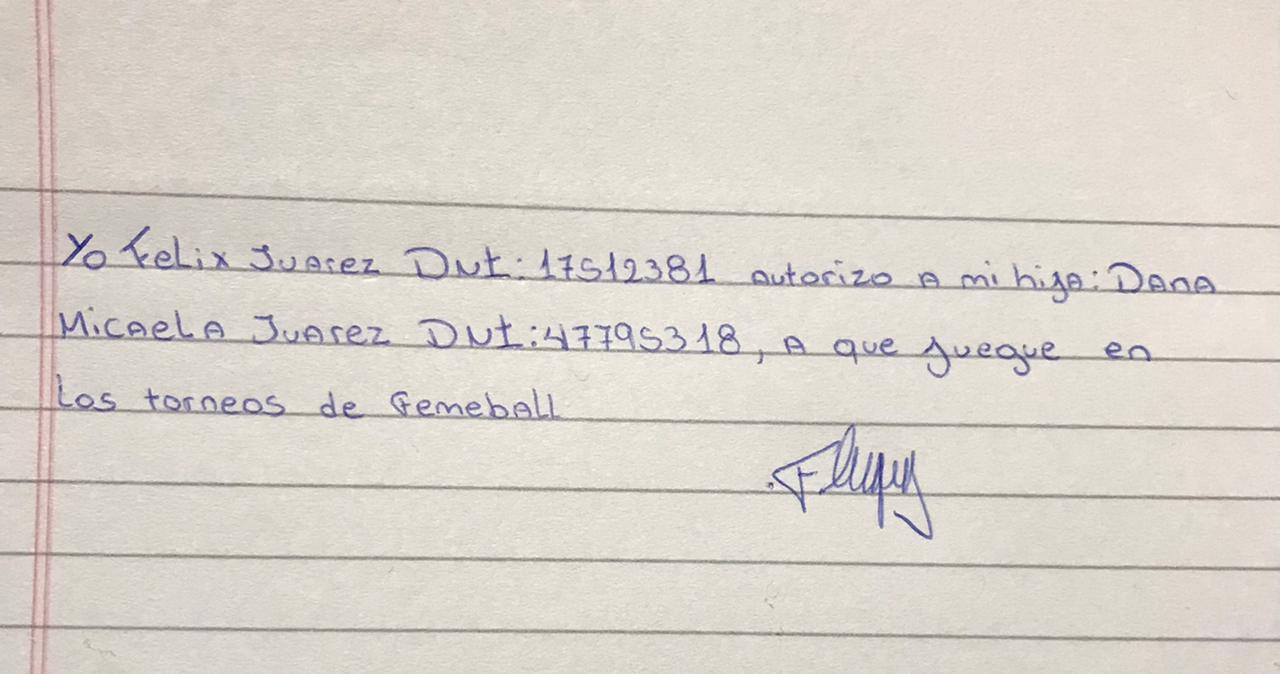 Yo Felix Juarez DNI: 17512381 autorizo A mi hija: Dana
Micaela Juarez DNI: 47795318, A que juegue en
Los torneos de Femeball